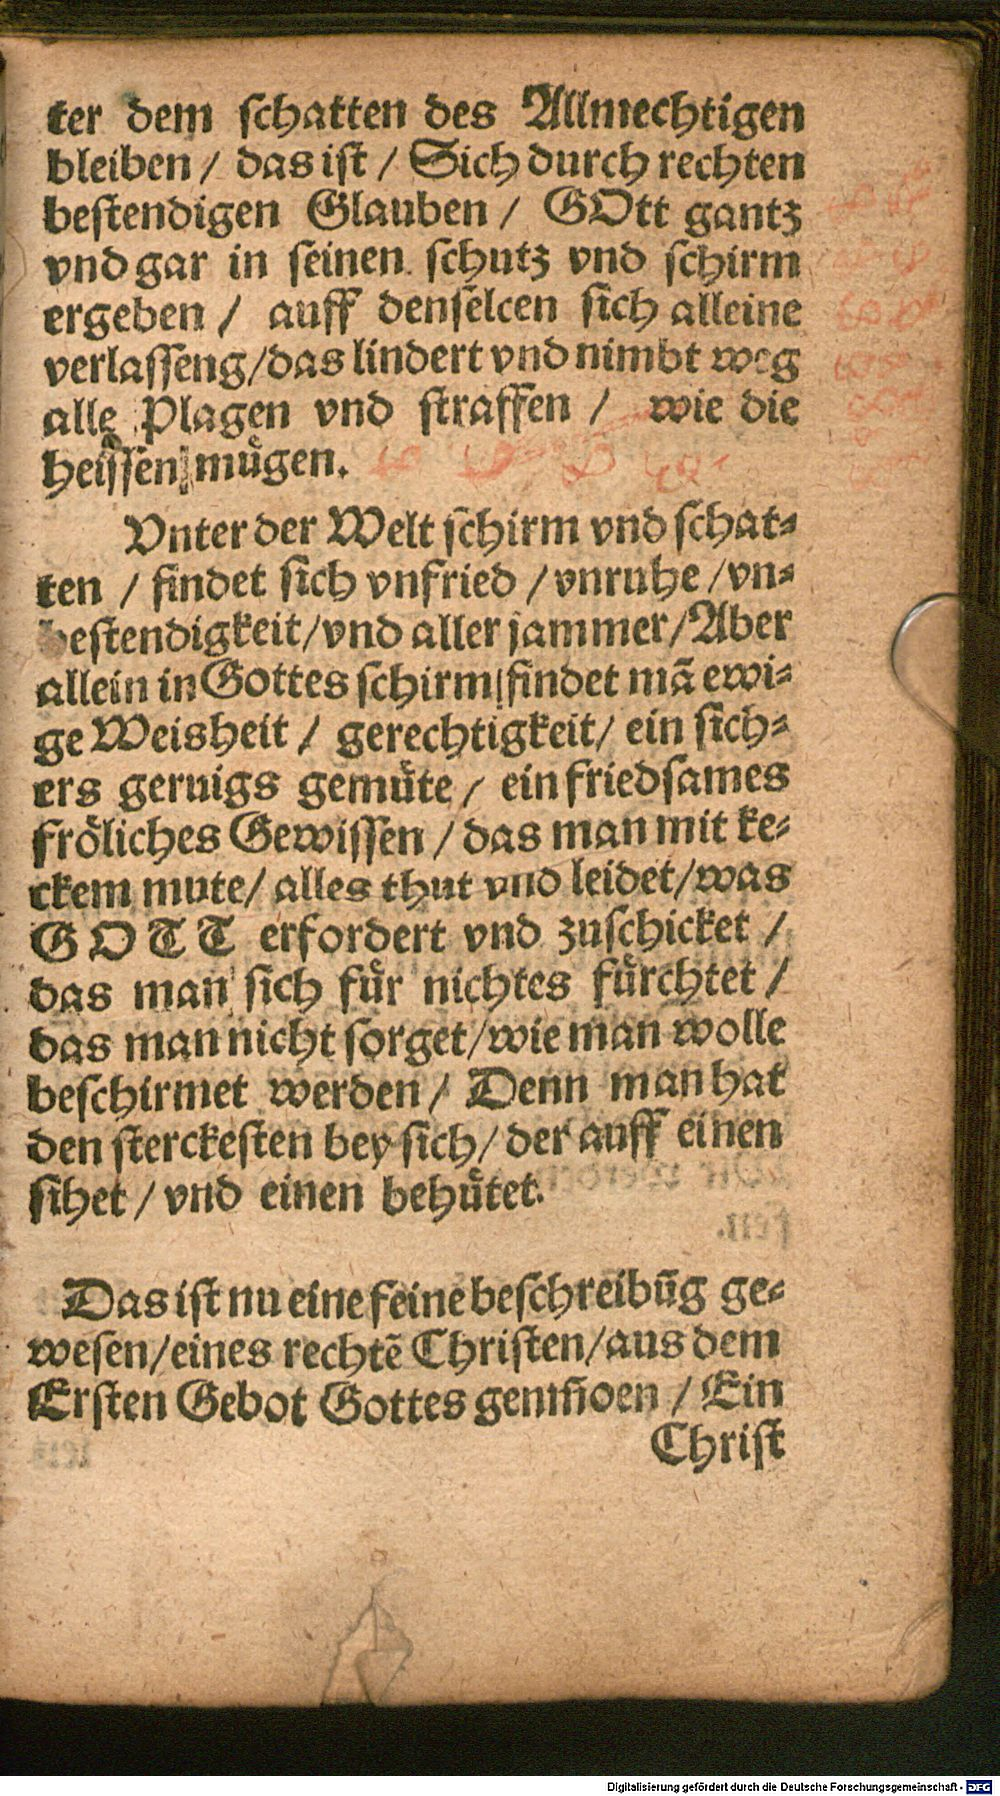 ter dem schatten des Allmechtigen
bleiben / das ist / Sich durch rechten
bestendigen Glauben / GOtt gantz
vnd gar in seinen schutz vnd schirm
ergeben / auff denselcen sich alleine
verlasseng/das lindert vnd nimbt weg
alle Plagen vnd straffen / wie die
heissen mügen.
Vnter der Welt schirm vnd schat-
ten / findet sich vnfried / vnruhe / vn-
bestendigkeit/vnd aller jammer/Aber
allein in Gottes schirm/findet mā ewi-
ge Weisheit / gerechtigkeit/ ein sich-
ers geruigs gemüte / ein friedsames
fröliches Gewissen / das man mit ke-
ckem mute/ alles thut vnd leidet/was
GOTT erfordert vnd zuschicket /
das man sich für nichtes fürchtet /
das man nicht sorget/wie man wolle
beschirmet werden / Denn man hat
den sterckesten bey sich/ der auff einen
sihet / vnd einen behütet.
Das ist nu eine feine beschreibūg ge-
wesen/eines rechtē Christen/aus dem
Ersten Gebot Gottes / Ein
Christ
Digitalisierung gefördert durch die Deutsche Forschungsgemeinschaft - DFG